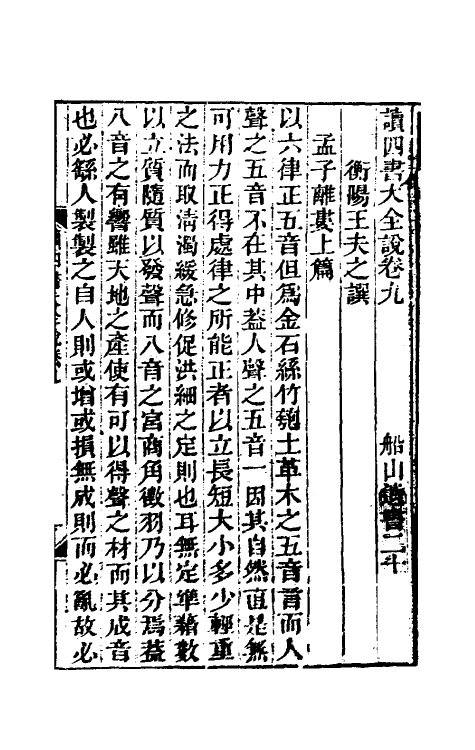 讀四書大全說卷九 船山遺書二十
衡陽王夫之譔
孟子離婁上篇
以六律正五音但爲金石絲竹匏土革木之五音言而人
聲之五音不在其中葢人聲之五音一因其自然直是無
可用力正得處律之所能正者以立長短大小多少輕重
之法而取清濁緩急修促洪細之定則也耳無定準藉數
以立質隨質以發聲而八音之宮商角徵羽乃以分焉葢
八音之有響雖天地之產使有可以得聲之材而其成音
也必繇人製製之自人則或增或損無成則而必亂故必